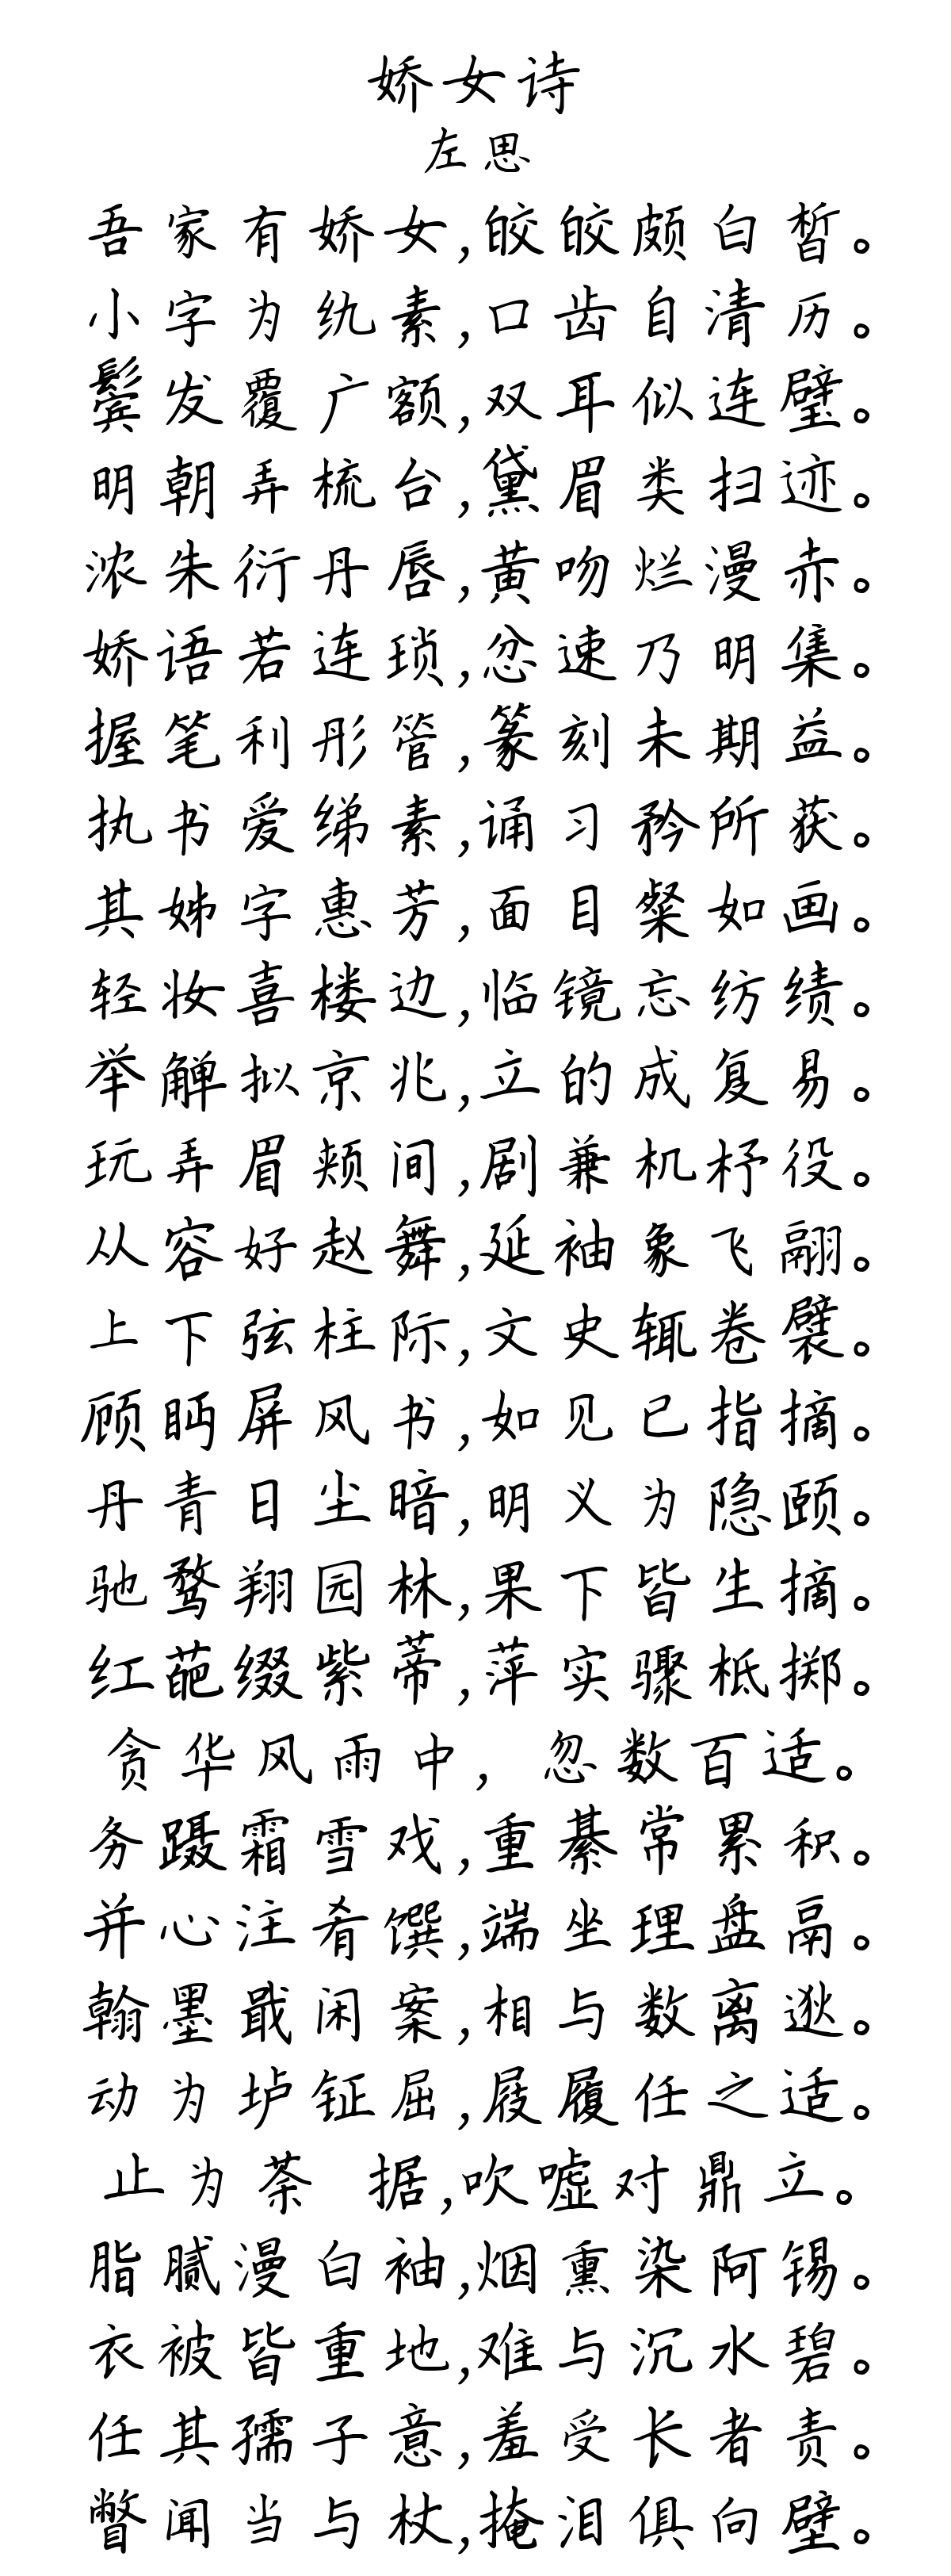 娇女诗
左思
吾家有娇女,皎皎颇白皙。
小字为纨素,口齿自清历。
鬓发覆广额,双耳似连璧。
明朝弄梳台,黛眉类扫迹。
浓朱衍丹唇,黄吻烂漫赤。
娇语若连琐,忿速乃明集。
握笔利彤管,篆刻未期益。
执书爱绨素,诵习矜所获。
其姊字惠芳,面目粲如画。
轻妆喜楼边,临镜忘纺绩。
举觯拟京兆,立的成复易。
玩弄眉颊间,剧兼机杼役。
从容好赵舞,延袖象飞翮。
上下弦柱际,文史辄卷襞。
顾眄屏风书,如见已指摘。
丹青日尘暗,明义为隐颐。
驰骛翔园林,果下皆生摘。
红葩缀紫蒂,萍实骤柢掷。
贪华风雨中,忽数百适。
务蹑霜雪戏,重綦常累积。
并心注肴馔,端坐理盘鬲。
翰墨戢闲案,相与数离逖。
动为垆钲屈,屐履任之适。
止为荼 据,吹嘘对鼎立。
脂腻漫白袖,烟熏染阿锡。
衣被皆重地,难与沉水碧。
任其孺子意,羞受长者责。
瞥闻当与杖,掩泪俱向壁。